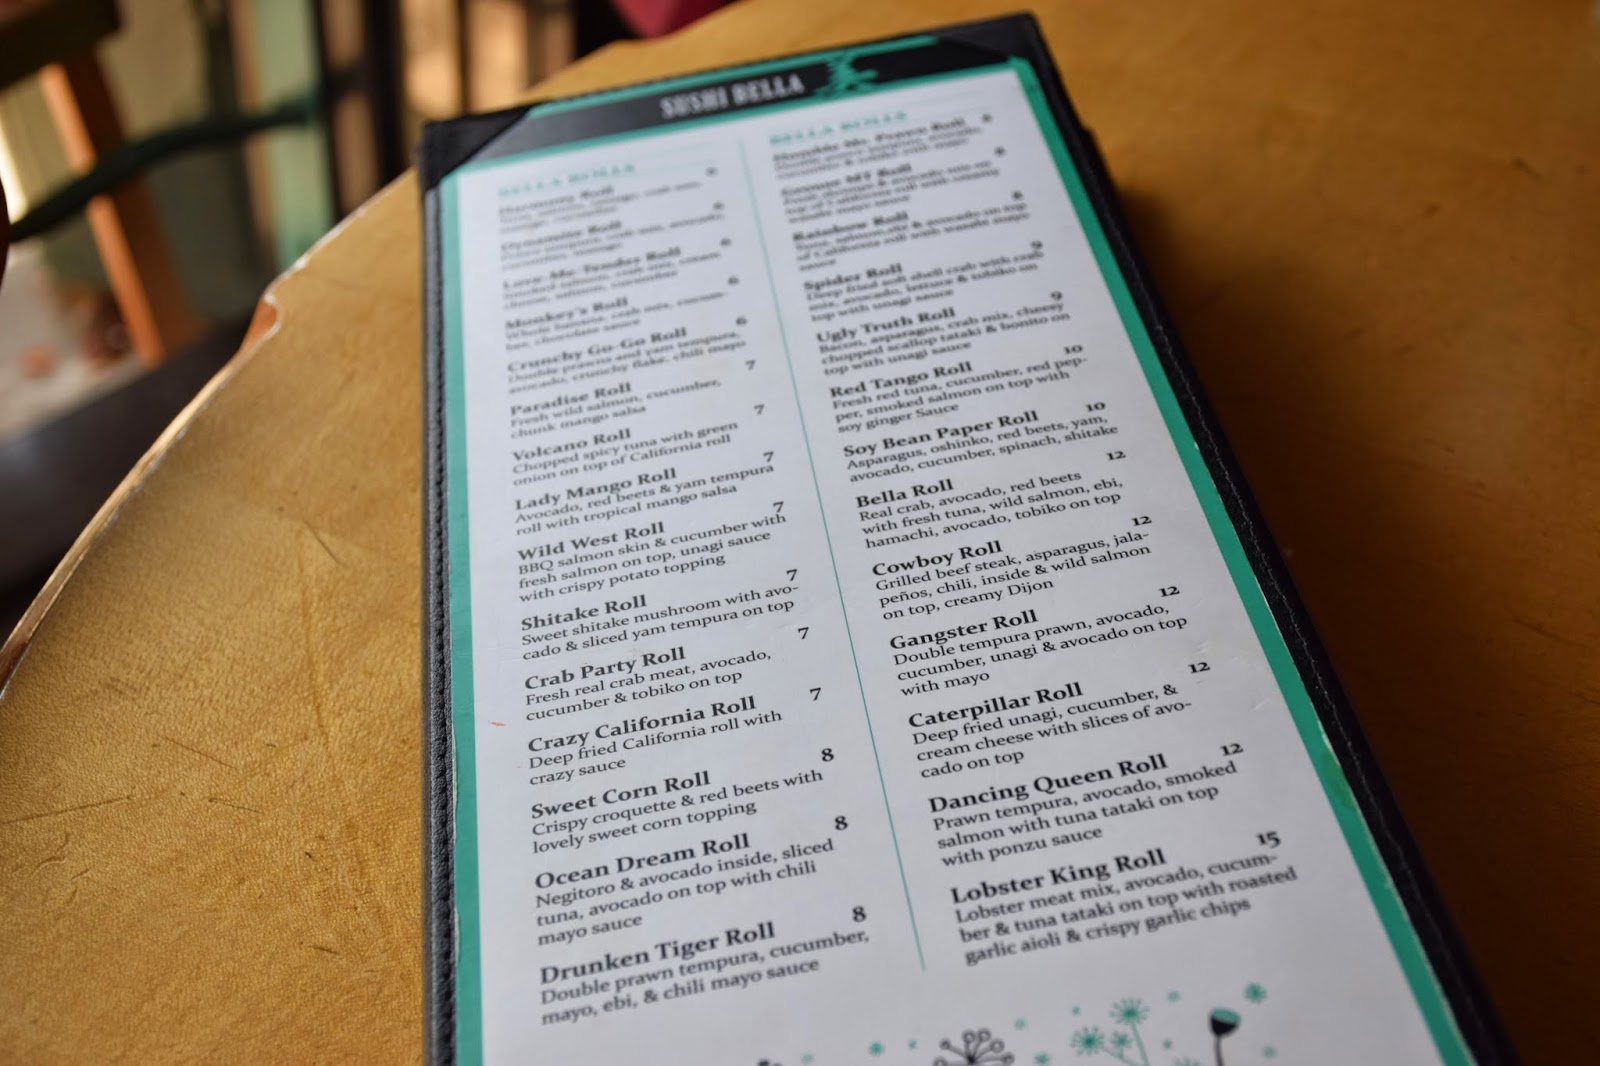 SUSHI BELLA
BELLA ROLLS
Harmony Roll
Dynamite Roll 6
Prawn tempura, crab mix, avocado,
cucumber, masago
Love Me Tender Roll 6
Smoked salmon, crab mix, cream
cheese, salmon, cucumber
Monkey's Roll 6
Whole banana, crab mix, cucum-
ber, chocolate sauce
Crunchy Go-Go Roll 6
Double prawns and yam tempura,
avocado, crunchy flake, chili mayo
Paradise Roll 7
Fresh wild salmon, cucumber,
chunk mango salsa
Volcano Roll 7
Chopped spicy tuna with green
onion on top of California roll
Lady Mango Roll 7
Avocado, red beets & yam tempura
roll with tropical mango salsa
Wild West Roll 7
BBQ salmon skin & cucumber with
fresh salmon on top, unagi sauce
with crispy potato topping
Shitake Roll 7
Sweet shitake mushroom with avo-
cado & sliced yam tempura on top
Crab Party Roll 7
Fresh real crab meat, avocado,
cucumber & tobiko on top
Crazy California Roll 7
Deep fried California roll with
crazy sauce
Sweet Corn Roll 8
Crispy croquette & red beets with
lovely sweet corn topping
Ocean Dream Roll 8
Negitoro & avocado inside, sliced
tuna, avocado on top with chili
mayo sauce
Drunken Tiger Roll 8
Double prawn tempura, cucumber,
mayo, ebi, & chili mayo sauce
BELLA ROLLS
Roll 8
cucumber & tobiko
Roll 8
top of California roll with creamy
wasabi mayo sauce
Rainbow Roll 8
Tuna, salmon, ebi & avocado on top
of California roll with wasabi mayo
sauce
Spider Roll 9
Deep fried soft shell crab with crab
mix, avocado, lettuce & tobiko on
top with unagi sauce
Ugly Truth Roll 9
Bacon, asparagus, crab mix, cheesy
chopped scallop tataki & bonito on
top with unagi sauce
Red Tango Roll 10
Fresh red tuna, cucumber, red pep-
per, smoked salmon on top with
soy ginger Sauce
Soy Bean Paper Roll 10
Asparagus, oshinko, red beets, yam,
avocado, cucumber, spinach, shitake
Bella Roll 12
Real crab, avocado, red beets
with fresh tuna, wild salmon, ebi,
hamachi, avocado, tobiko on top
Cowboy Roll 12
Grilled beef steak, asparagus, jala-
peños, chili, inside & wild salmon
on top, creamy Dijon
Gangster Roll 12
Double tempura prawn, avocado,
cucumber, unagi & avocado on top
with mayo
Caterpillar Roll 12
Deep fried unagi, cucumber, &
cream cheese with slices of avo-
cado on top
Dancing Queen Roll 12
Prawn tempura, avocado, smoked
salmon with tuna tataki on top
with ponzu sauce
Lobster King Roll 15
Lobster meat mix, avocado, cucum-
ber & tuna tataki on top with roasted
garlic aioli & crispy garlic chips